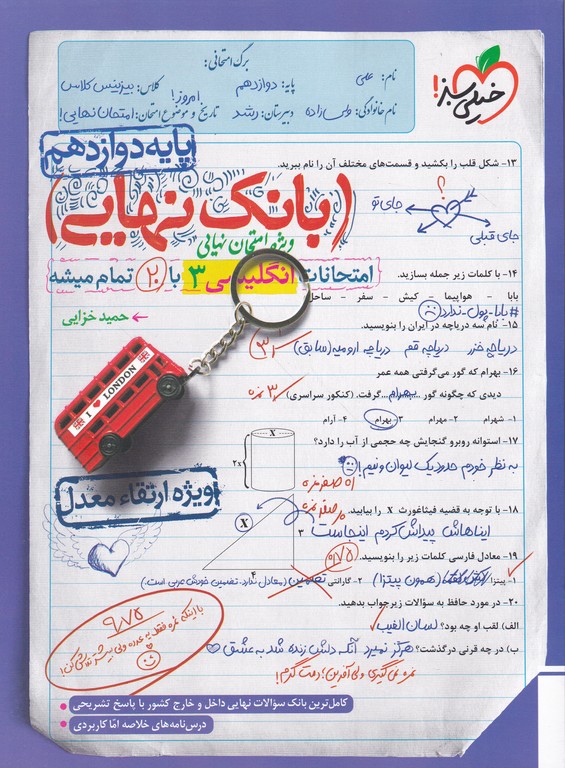 خیلی سبز!
برگ امتحانی:
نام: علی
پایه: دوازدهم
کلاس: بیزینس کلاس
نام خانوادگی: ولی‌زاده
دبیرستان: رشد
تاریخ و موضوع امتحان: امروز! امتحان نهایی!
پایه دوازدهم
۱۳- شکل قلب را بکشید و قسمت‌های مختلف آن را نام ببرید.
؟
جای تو
جای قبلی
(بانک نهایی)
ویژه امتحان نهایی
امتحانات انگلیسی ۳ با ۲۰ تمام میشه
حمید خزایی
۱۴- با کلمات زیر جمله بسازید.
بابا - هواپیما - کیش - سفر - ساحل
#بابا-پول-ندارد
۱۵- نام سه دریاچه در ایران را بنویسید.
دریاچه خزر دریاچه قم دریاچه ارومیه (سابق)
۱۶- بهرام که گور می‌گرفتی همه عمر
دیدی که چگونه گور ...بهرام... گرفت. (کنکور سراسری)
۱- شهرام ۲- مهرام ۳- بهرام ۴- آرام
I ♥ LONDON
۱۷- استوانه روبرو گنجایش چه حجمی از آب را دارد؟
X
2x
به نظر خودم حدود یک لیوان و نیم!
ویژه ارتقاء معدل
۱۸- با توجه به قضیه فیثاغورث X را بیابید.
X
۳
۲
ایناهاش پیداش کردم اینجاست
۱۹- معادل فارسی کلمات زیر را بنویسید.
۱- پیتزا (همون پیتزا) ۲- گارانتی تضمین (معادل ندارد. تضمین خودش عربی است.)
۲۰- در مورد حافظ به سؤالات زیر جواب بدهید.
الف) لقب او چه بود؟ لسان الغیب
ب) در چه قرنی درگذشت؟ هرگز نمیرد آنکه دلش زنده شد به عشق
نمره نمی‌گیری ولی آفرین! دمت گرم!
۹/۷۵
کامل‌ترین بانک سؤالات نهایی داخل و خارج کشور با پاسخ تشریحی
درس‌نامه‌های خلاصه امّا کاربردی